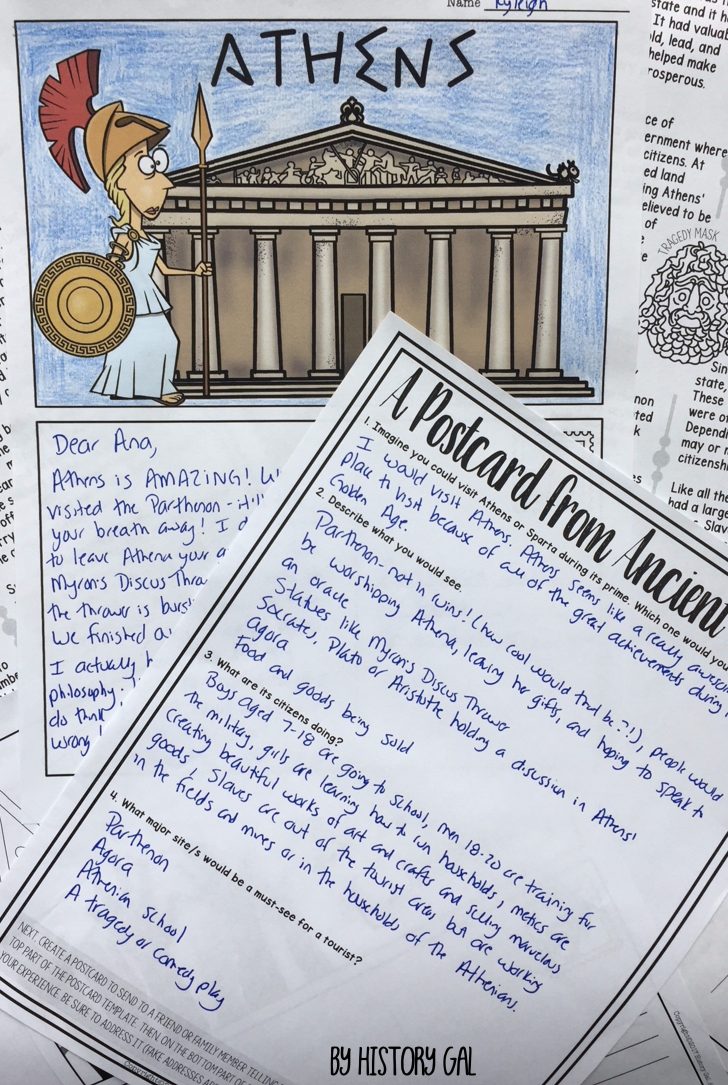 Name Kyleigh
ATHENS
Dear Ana,
Athens is AMAZING! W
visited the Parthenon - it'll
your breath away! I d
to leave Athena your a
Myron's Discus Thro
the thrower is bursti
we finished a
I actually h
philosophy;
do think
wrong!
A Postcard from Ancient
1. Imagine you could visit Athens or Sparta during its prime. Which one would you
I would visit Athens. Athens seems like a really awesome
place to visit because of all of the great achievements during
Golden Age.
2. Describe what you would see.
Parthenon - not in ruins! (how cool would that be?!), people would
be worshipping Athena, leaving her gifts, and hoping to speak to
an oracle
Statues like Myron's Discus Thrower
Socrates, Plato or Aristotle holding a discussion in Athens'
agora
Food and goods being sold
3. What are its citizens doing?
Boys aged 7-18 are going to school, men 18-20 are training for
the military, girls are learning how to run households, metics are
creating beautiful works of art and crafts and selling marvelous
goods, slaves are out of the tourist areas but are working
in the fields and mines or in the households of the Athenians.
4. What major site/s would be a must-see for a tourist?
Parthenon
Agora
Athenian school
A tragedy or comedy play
NEXT, CREATE A POSTCARD TO SEND TO A FRIEND OR FAMILY MEMBER TELLING
TOP PART OF THE POSTCARD TEMPLATE. THEN, ON THE BOTTOM PART OF
YOUR EXPERIENCE. BE SURE TO ADDRESS IT (FAKE ADDRESSES AR
state and it h
It had valuab
ld, lead, and
helped make
rosperous.
ce of
ernment where
citizens. At
ed land
ing Athens'
elieved to be
of
TRAGEDY MASK
Sin
state.
These
were o
Dependi
may or n
citizenshi
Like all the
had a large
Slav
BY HISTORY GAL